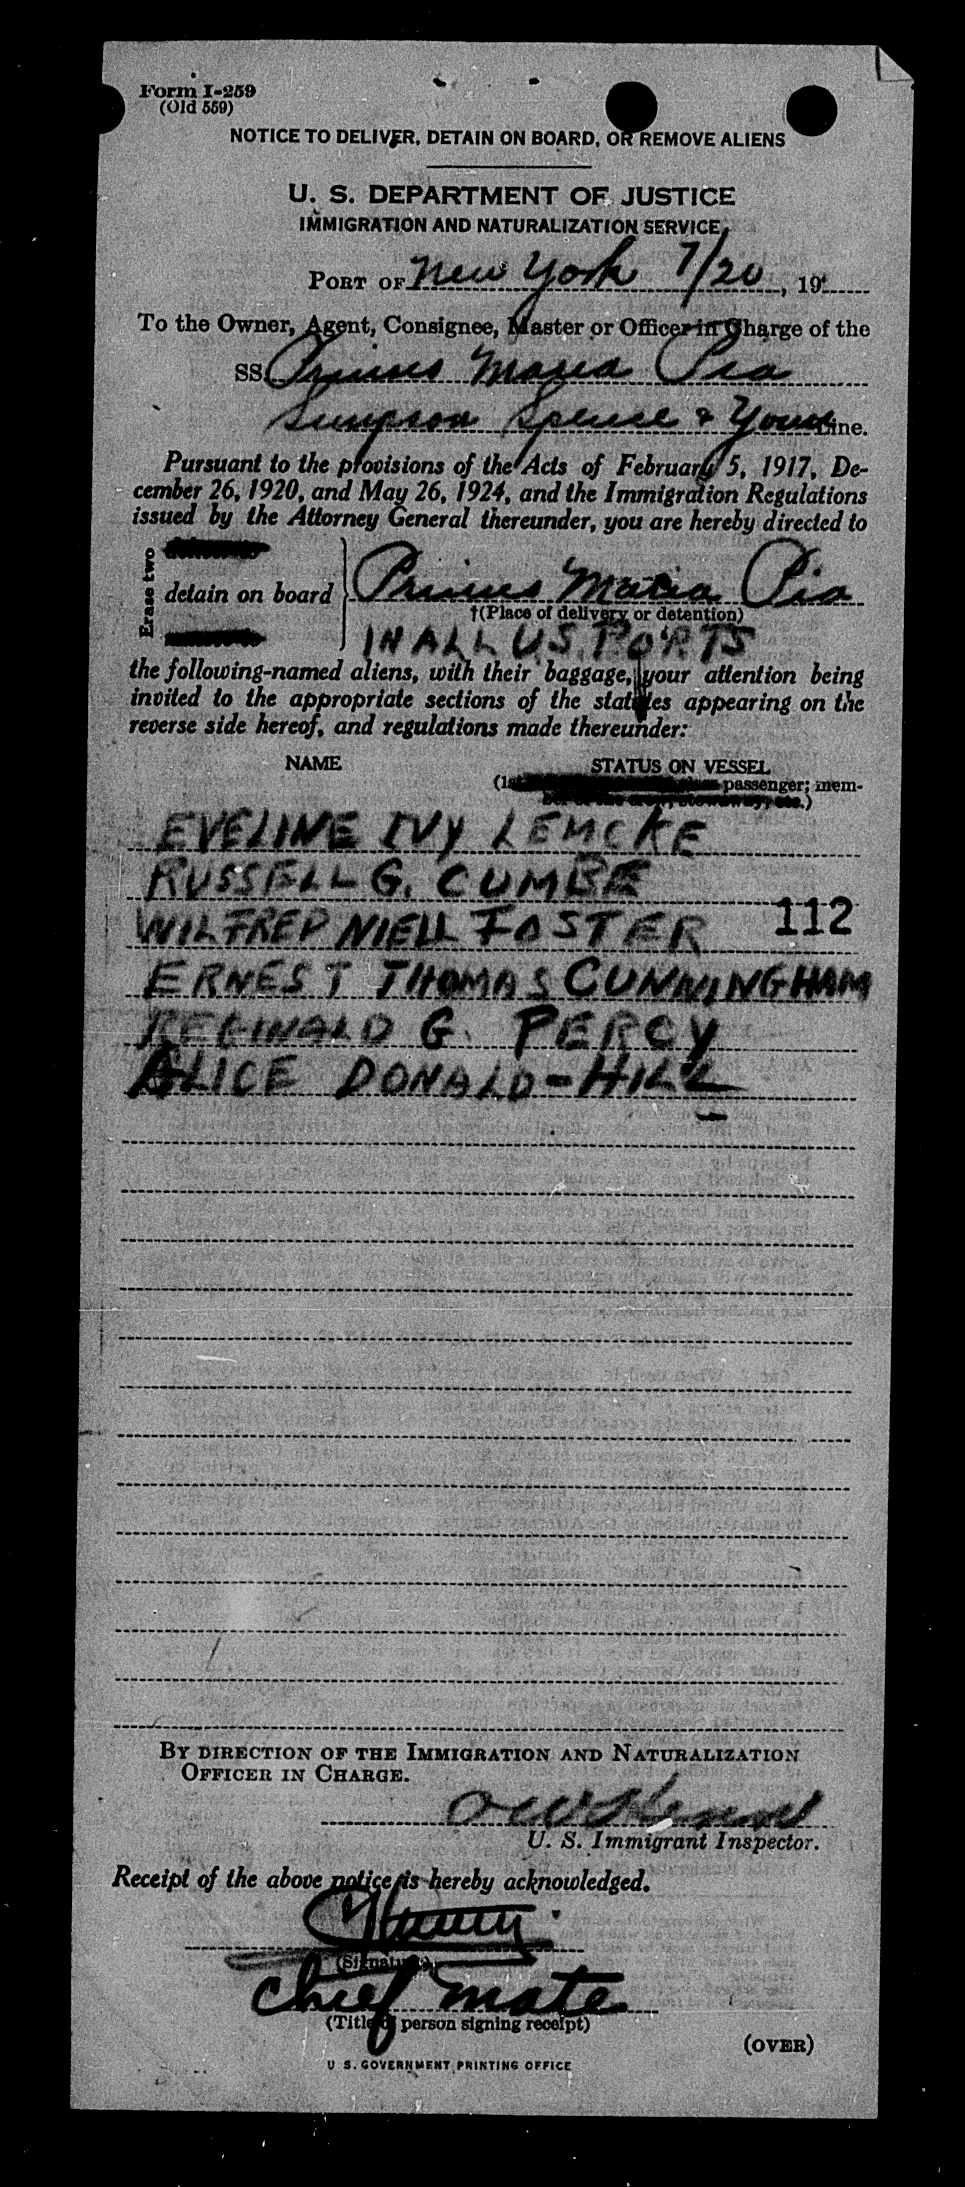 Form I-259
(Old 559)
NOTICE TO DELIVER, DETAIN ON BOARD, OR REMOVE ALIENS
U. S. DEPARTMENT OF JUSTICE
IMMIGRATION AND NATURALIZATION SERVICE
PORT OF New York 7/20, 19
To the Owner, Agent, Consignee, Master or Officer in Charge of the
SS. Prinses Maria Pia
Simpson Spence & Young Line.
Pursuant to the provisions of the Acts of February 5, 1917, De-
cember 26, 1920, and May 26, 1924, and the Immigration Regulations
issued by the Attorney General thereunder, you are hereby directed to
Erase two
detain on board Prinses Maria Pia
†(Place of delivery or detention)
IN ALL U.S. PORTS
the following-named aliens, with their baggage, your attention being
invited to the appropriate sections of the statutes appearing on the
reverse side hereof, and regulations made thereunder:
NAME STATUS ON VESSEL
(1st passenger; mem-
EVELINE IVY LEMCKE
RUSSELL G. CUMBE
WILFRED NIELL FOSTER 112
ERNEST THOMAS CUNNINGHAM
REGINALD G. PERCY
ALICE DONALD-HILL
BY DIRECTION OF THE IMMIGRATION AND NATURALIZATION
OFFICER IN CHARGE.
U. S. Immigrant Inspector.
Receipt of the above notice is hereby acknowledged.
(Signature)
Chief mate
(Title of person signing receipt)
(OVER)
U S. GOVERNMENT PRINTING OFFICE